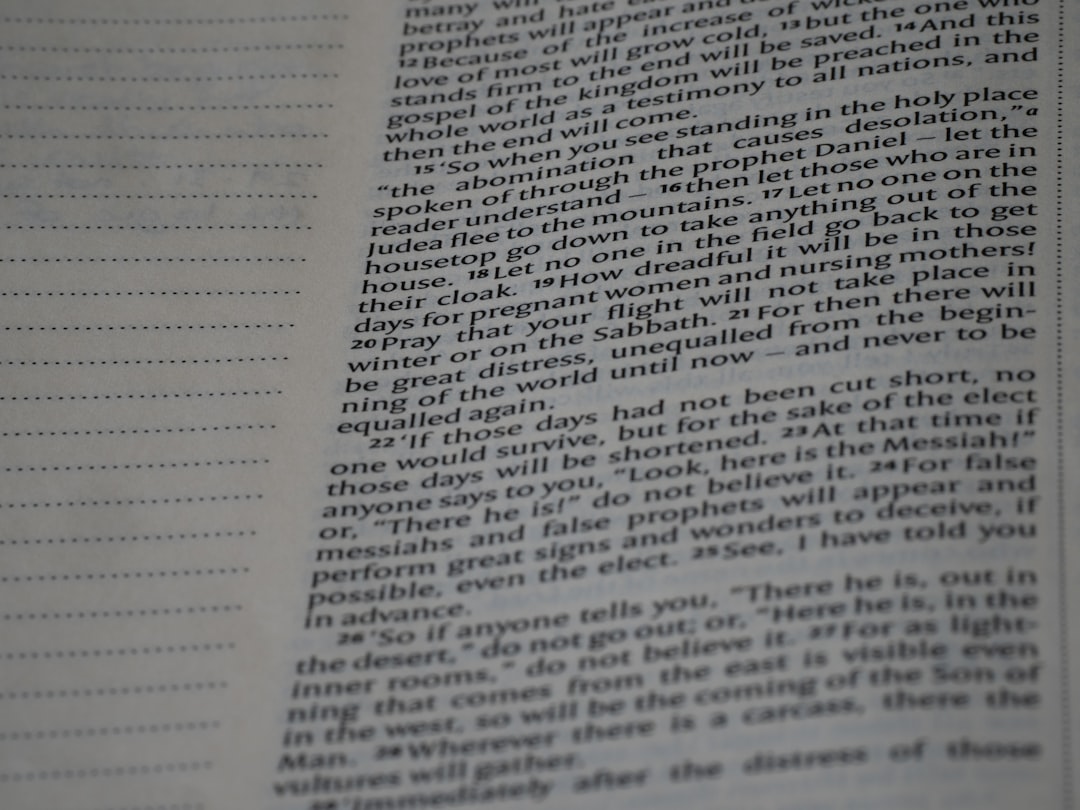 many will
betray and hate
prophets will appear and
12 Because of the increase of
love of most will grow cold, 13 but the one who
stands firm to the end will be saved. 14 And this
gospel of the kingdom will be preached in the
whole world as a testimony to all nations, and
then the end will come.
15 ‘So when you see standing in the holy place
“the abomination that causes desolation,” a
spoken of through the prophet Daniel – let the
reader understand – 16 then let those who are in
Judea flee to the mountains. 17 Let no one on the
housetop go down to take anything out of the
house. 18 Let no one in the field go back to get
their cloak. 19 How dreadful it will be in those
days for pregnant women and nursing mothers!
20 Pray that your flight will not take place in
winter or on the Sabbath. 21 For then there will
be great distress, unequalled from the begin-
ning of the world until now – and never to be
equalled again.
22 ‘If those days had not been cut short, no
one would survive, but for the sake of the elect
those days will be shortened. 23 At that time if
anyone says to you, “Look, here is the Messiah!”
or, “There he is!” do not believe it. 24 For false
messiahs and false prophets will appear and
perform great signs and wonders to deceive, if
possible, even the elect. 25 See, I have told you
in advance.
26 ‘So if anyone tells you, “There he is, out in
the desert,” do not go out; or, “Here he is, in the
inner rooms,” do not believe it. 27 For as light-
ning that comes from the east is visible even
in the west, so will be the coming of the Son of
Man. 28 Wherever there is a carcass, there the
vultures will gather.
29 ‘Immediately after the distress of those